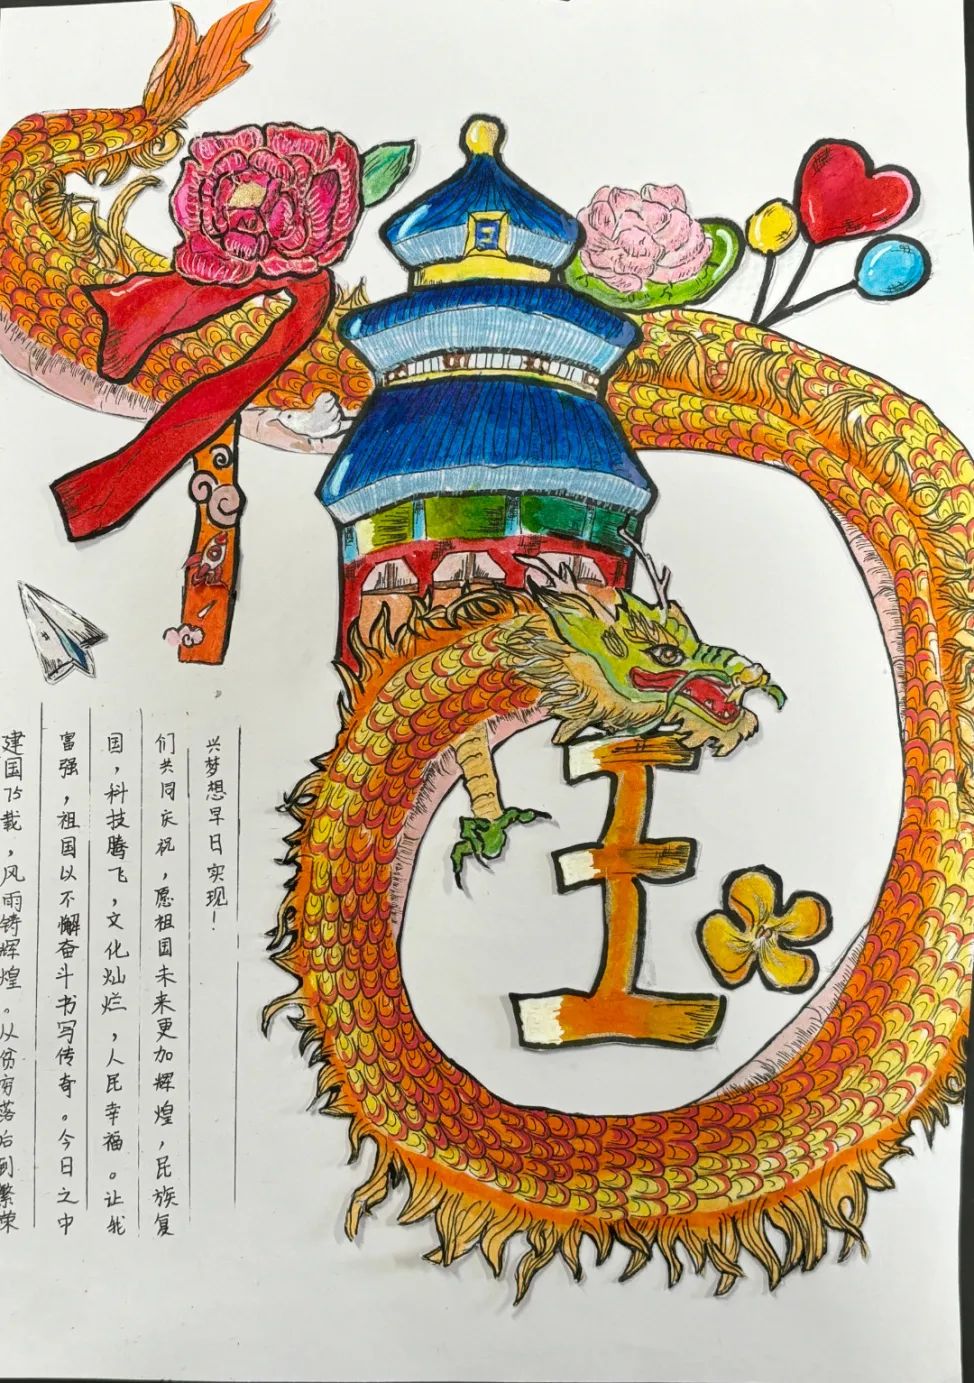 国
建国75载，风雨铸辉煌。从贫穷落后到繁荣
富强，祖国以不懈奋斗书写传奇。今日之中
国，科技腾飞，文化灿烂，人民幸福。让我
们共同庆祝，愿祖国未来更加辉煌，民族复
兴梦想早日实现！